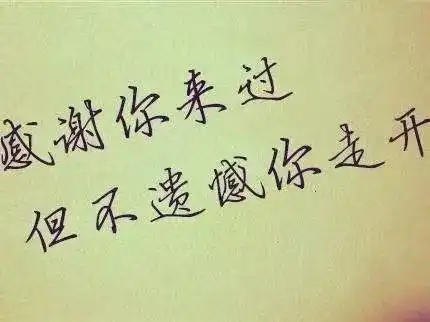 感谢你来过
但不遗憾你走开